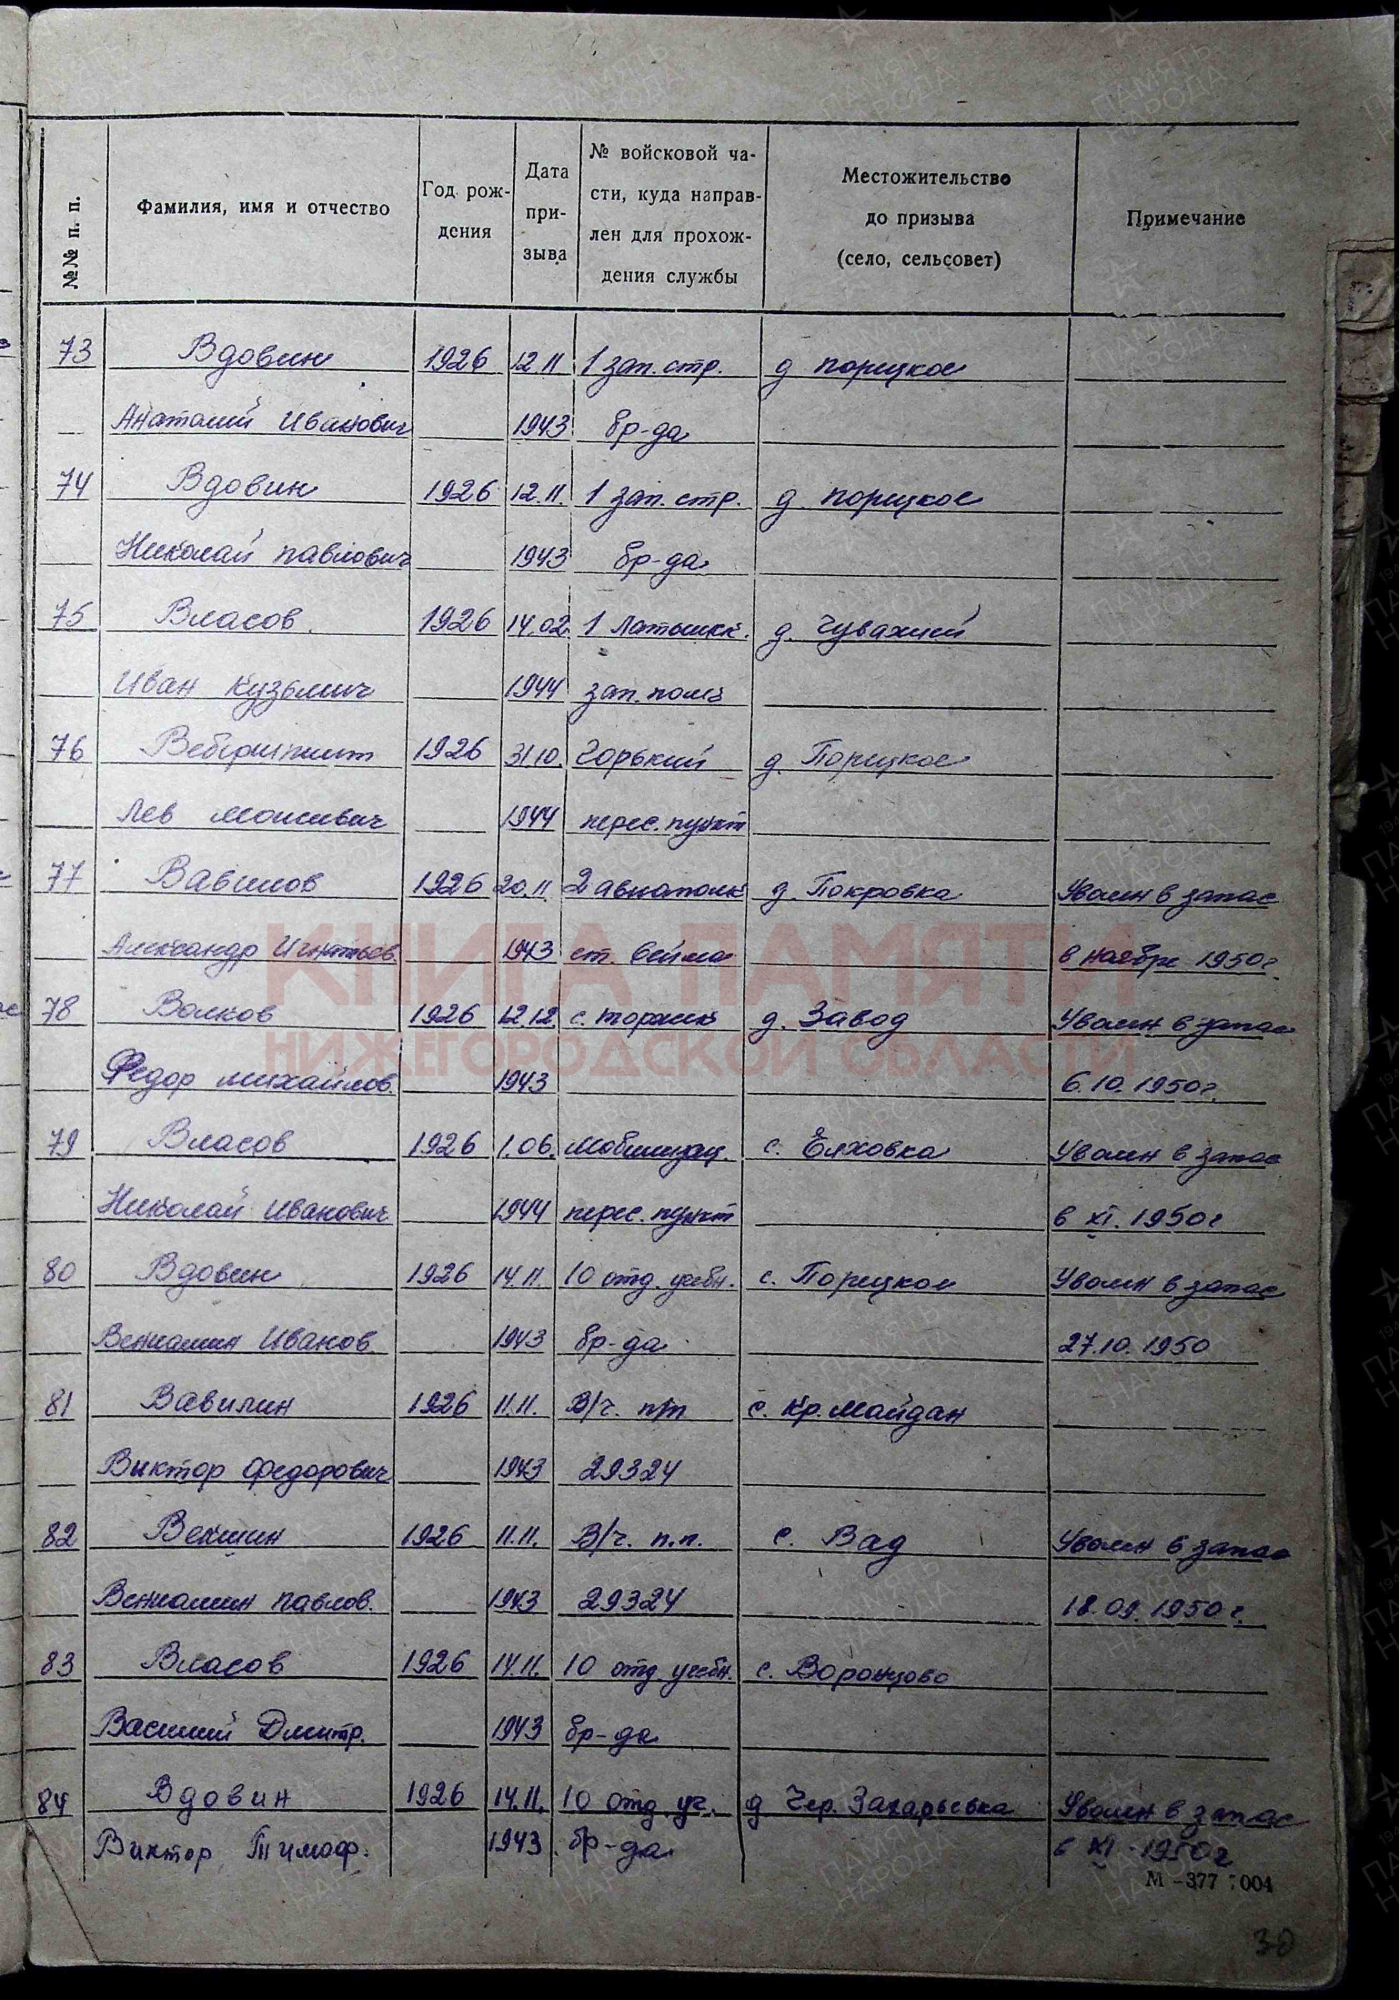 №№ п. п.
Фамилия, имя и отчество
Год рож-
дения
Дата
при-
зыва
№ войсковой ча-
сти, куда направ-
лен для прохож-
дения службы
Местожительство
до призыва
(село, сельсовет)
Примечание
73 Вдовин 1926 12.11 1 зап. стр. д порецкое
Анатолий Иванович 1943 бр-да
74 Вдовин 1926 12.11. 1 зап. стр. д. порецкое
Николай павлович 1943 бр-да
75 Власов 1926 14.02. 1 Латышск. д.
Иван Кузьмич 1944 зап. полк
76 1926 31.10. Горький д. Порецкое
Лев Моисевич 1944 перес. пункт
77 Вавилов 1926 20.11. 2 авиаполк д. Покровка Уволен в запас
Александр Игнатьев. 1943 ст. Сейма в ноябре 1950г.
78 Волков 1926 12.12. с. д. Завод Уволен в запас
Федор михайлов. 1943 6.10.1950г.
79 Власов 1926 1.06. мобилизац. с. Елховка Уволен в запас
Николай Иванович 1944 перес. пункт в XI. 1950г
80 Вдовин 1926 14.11. 10 отд. учебн. с. Порецкое Уволен в запас
Вениамин Иванов 1943 бр-да 27.10.1950
81 Вавилин 1926 11.11. В/ч. п/п с. Кр. Майдан
Виктор Федорович 1943 29324
82 Векшин 1926 11.11. В/ч. п.п. с. Вад Уволен в запас
Вениамин павлов. 1943 29324 18.09.1950г.
83 Власов 1926 14.11. 10 отд. учебн. с. Воронцово
Василий Дмитр. 1943 бр-да
84 Вдовин 1926 14.11. 10 отд. уч. д Чер. Захарьевка Уволен в запас
Виктор Тимоф. 1943 бр-да в XI-1950г
М-377 004
30
КНИГА ПАМЯТИ
НИЖЕГОРОДСКОЙ ОБЛАСТИ
ПАМЯТЬ
НАРОДА